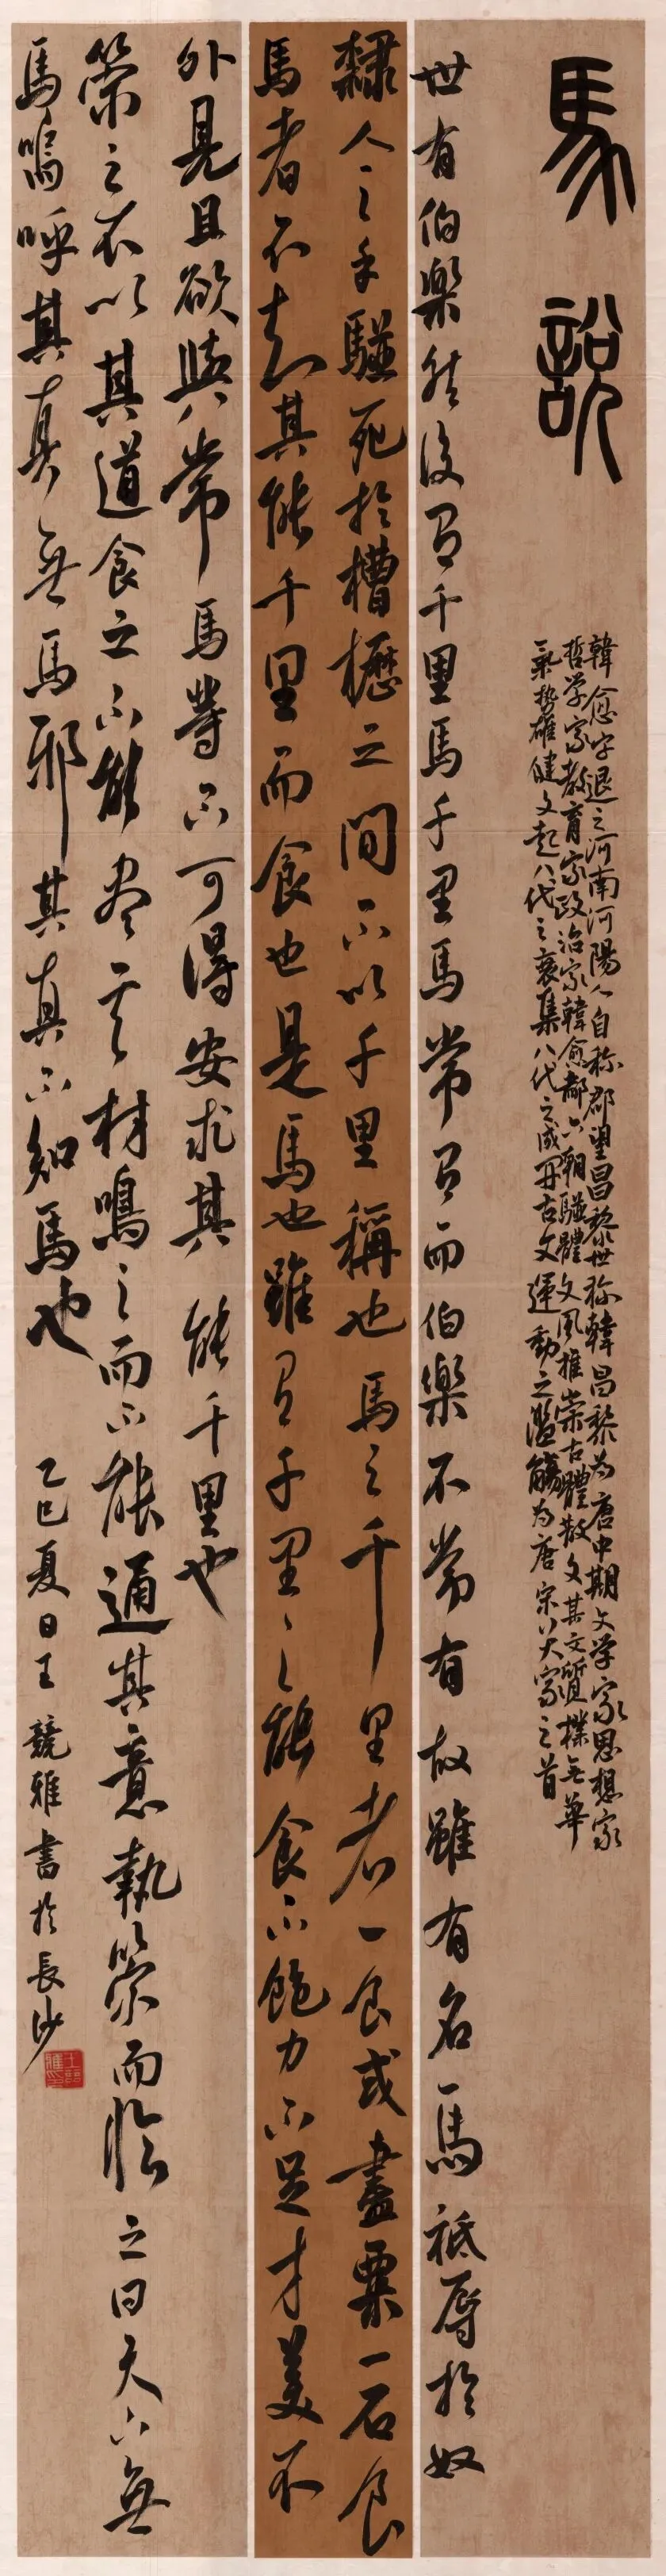 馬說
韓愈字退之河南河陽人自称郡望昌黎世称韓昌黎為唐中期文学家思想家
哲学家教育家政治家韓愈鄙六朝駢體文風推崇古體散文其文質樸無華
氣勢雄健文起八代之衰集八代之成開古文運動之濫觴為唐宋八大家之首
世有伯樂然後有千里馬千里馬常有而伯樂不常有故雖有名馬祗辱於奴
隸人之手駢死於槽櫪之間不以千里稱也馬之千里者一食或盡粟一石食
馬者不知其能千里而食也是馬也雖有千里之能食不飽力不足才美不
外見且欲與常馬等不可得安求其能千里也
策之不以其道食之不能盡其材鳴之而不能通其意執策而臨之曰天下無
馬嗚呼其真無馬邪其真不知馬也 乙巳夏日王競雅書於長沙